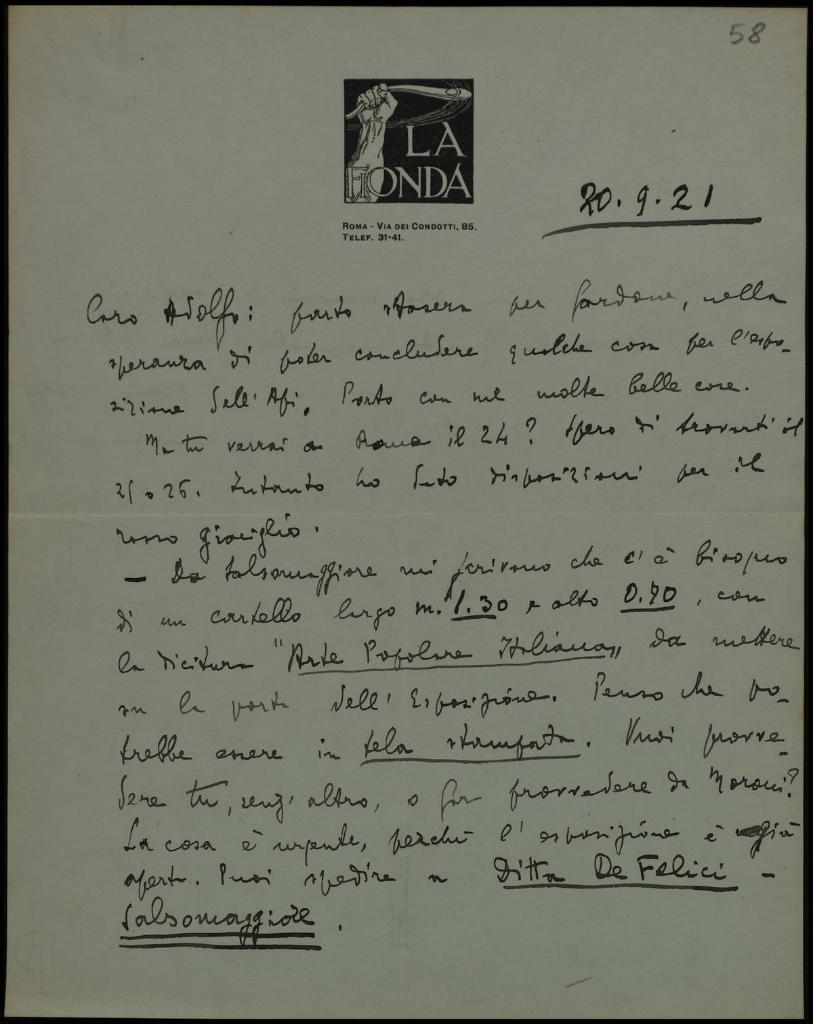 58
LA
FIONDA
ROMA - VIA DEI CONDOTTI, 85.
TELEF. 31-41.
20.9.21
Caro Adolfo: parto stasera per Gardone, nella
speranza di poter concludere qualche cosa per l'espo-
sizione dell'Api. Porto con me molte belle cose.
Ma tu verrai a Roma il 24? Spero di trovarti il
25 o 26. Intanto ho dato disposizioni per il
rosso giaciglio.
— Da Salsomaggiore mi scrivono che c'è bisogno
di un cartello largo m. 1.30 e alto 0.70, con
la dicitura "Arte Popolare Italiana„ da mettere
su la porta dell'Esposizione. Penso che po-
trebbe essere in tela stampata. Vuoi provve-
dere tu, senz'altro, o far provvedere da Moroni?
La cosa è urgente, perchè l'esposizione è già
aperta. Puoi spedire a Ditta De Felici -
Salsomaggiore.